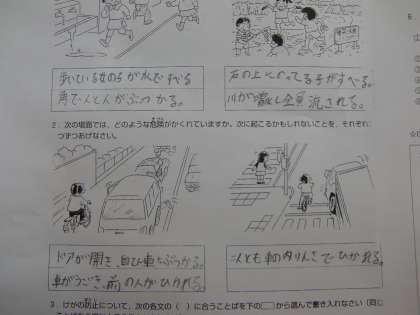 歩いている女の子が水ですべる
角で人と人がぶつかる。
石の上にのってる子がすべる。
川が激し全員流される。
2 次の場面では、どのような危険がかくれていますか。次に起こるかもしれないことを、それぞれ
つずつあげなさい。
ドアが開き、自ひ車とぶつかる。
車がうごき、前の人がひかれる。
二人とも車の内りんさでひかれる。
3 けがの防止について、次の各文の( )に合うことばを下の から選んで書き入れなさい(同じ